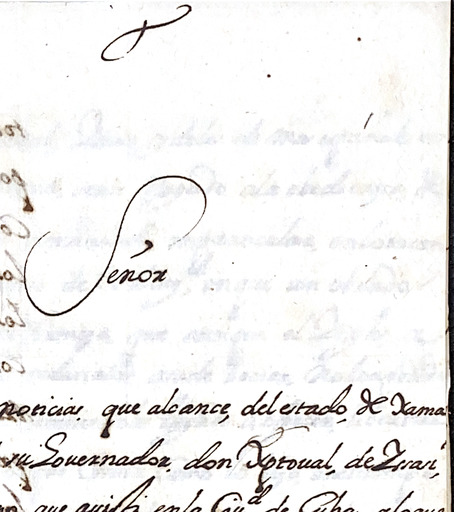 Señor
noticias, que alcance, del estado, de Xama
su Governador, don Xptoval, de Issasi,
que en la Ciud de Cuba,